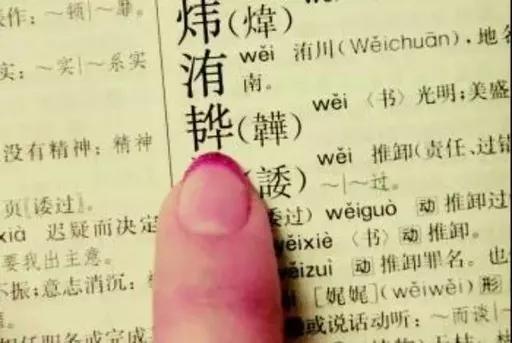 作：～顿|～靡。
实：～实|～系实
没有精神；精神
页[诿过]
xià 迟疑而决定
要我出主意。
不振；意志消沉：
担任职务或完成
炜(煒)
洧 wěi 洧川(Wěichuān)，地名
南。
(韡) wěi 〈书〉光明；美盛
(諉) wěi 推卸(责任、过错
～|～过。
委过) wěiguò 动 推卸过
wěixiè 〈书〉动 推卸。
wěizuì 动 推卸罪名。也
[娓娓](wěiwěi) 形
或说话动听：～而谈|～